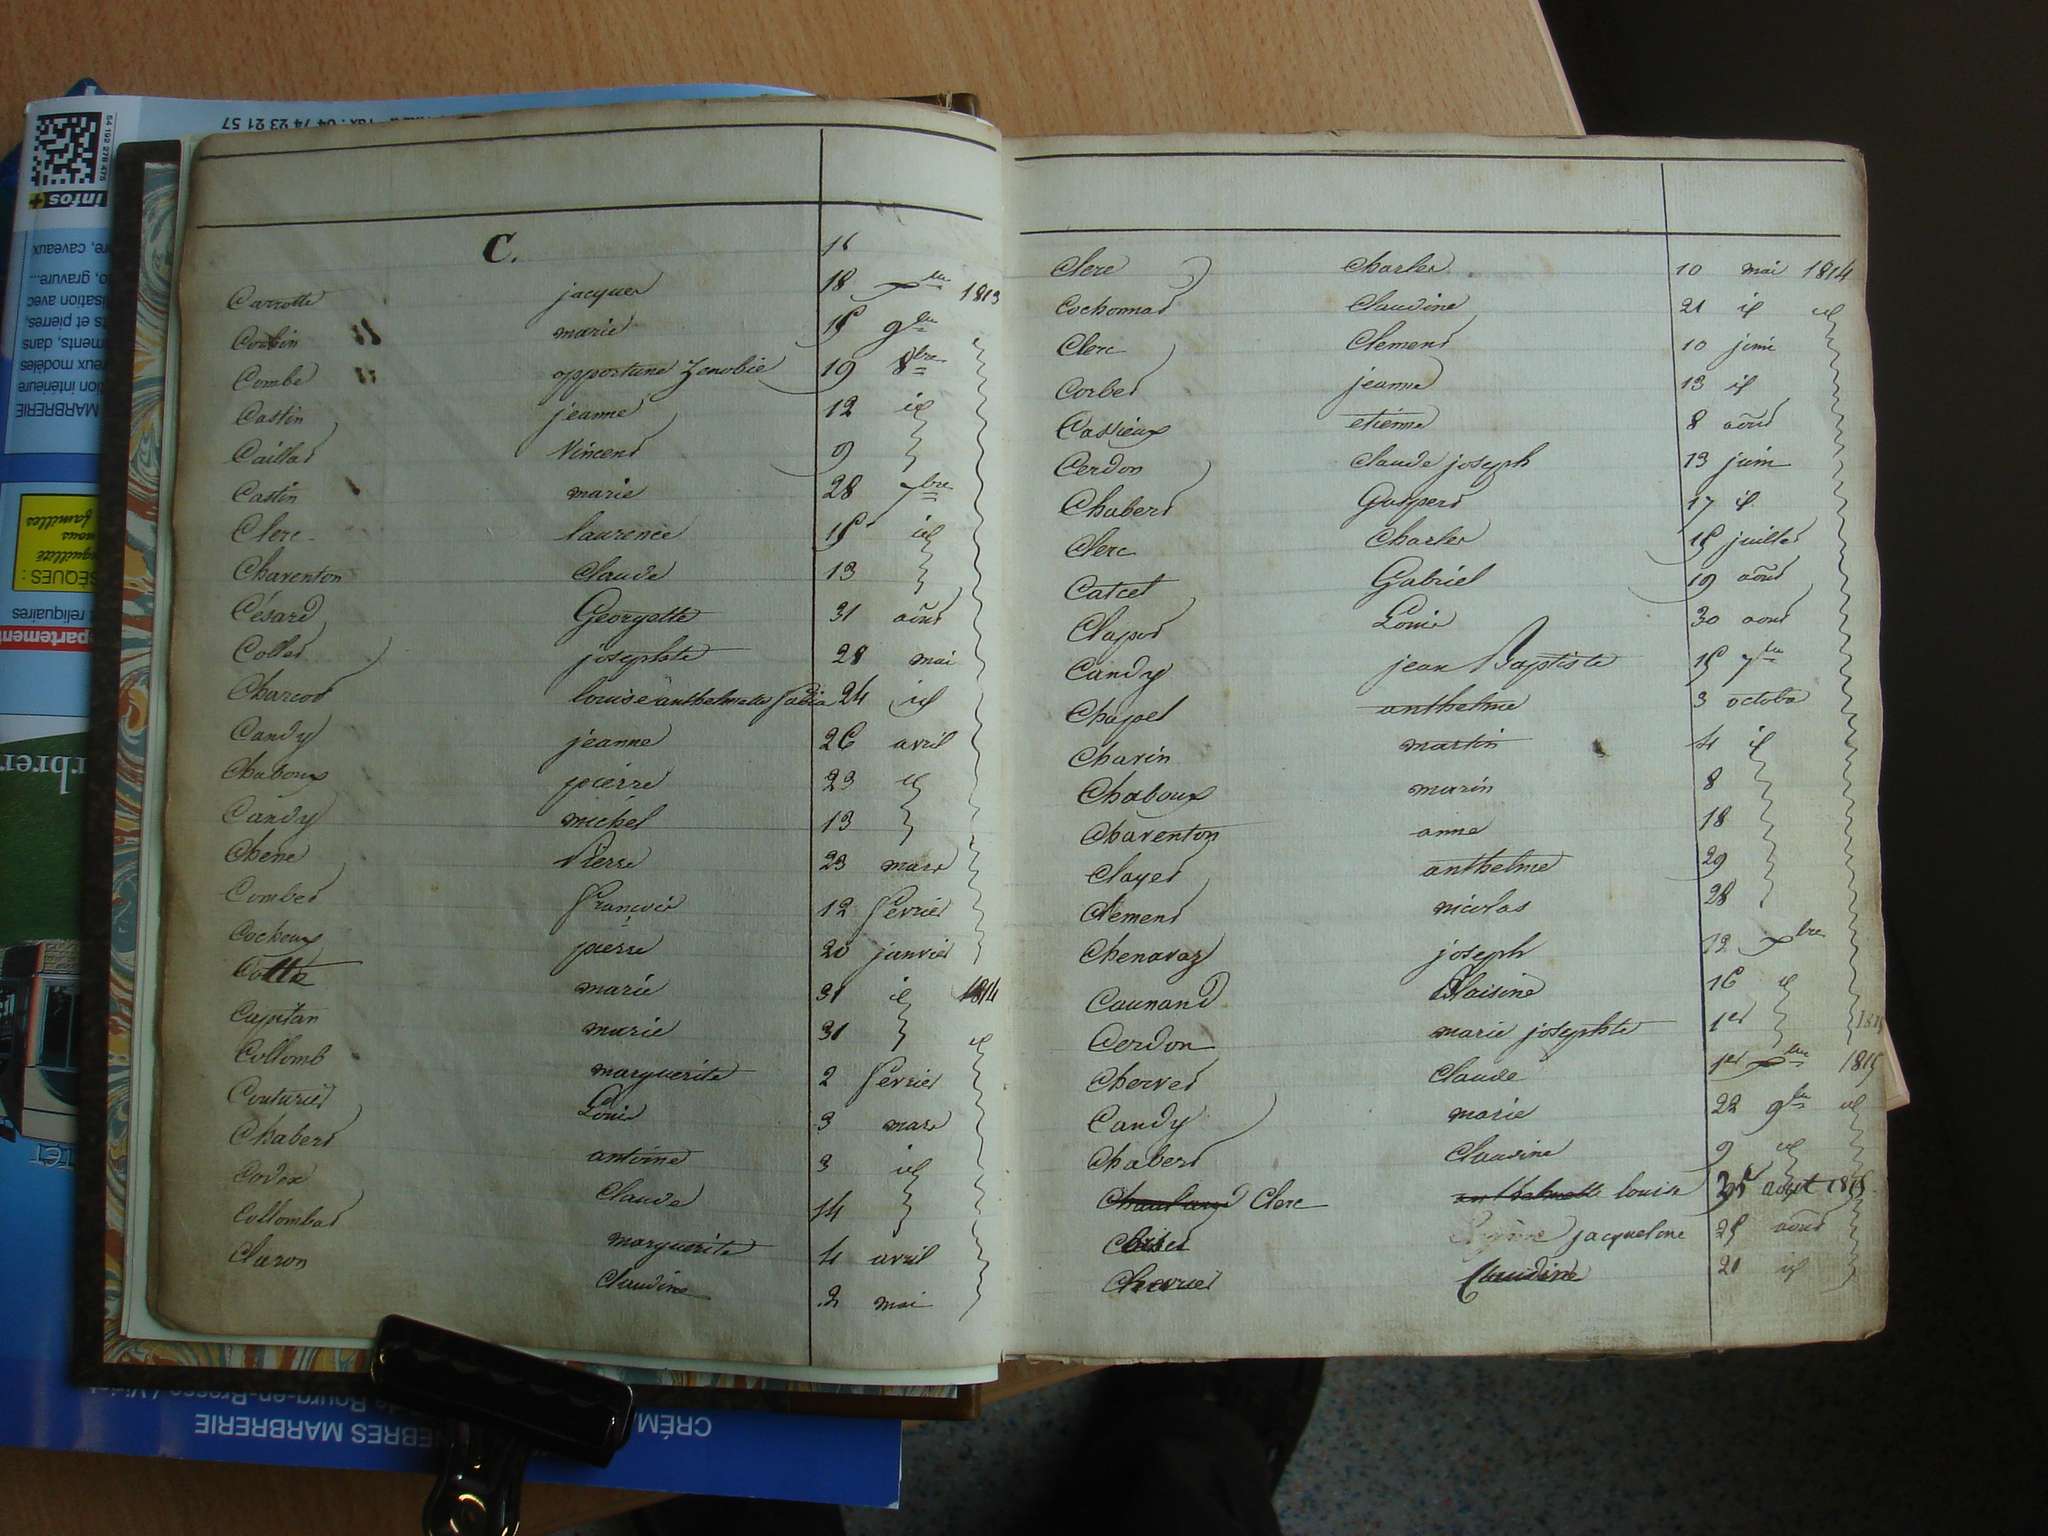 C.
16
Carrotte jacques 18 xbre 1813
Corbin marie 15 9bre
Combe opportune Zenobie 19 8bre
Castin jeanne 12 id
Caillat Vincent 9
Castin marie 28 7bre
Clerc laurence 15 id
Charenton Claude 13
Césard Georgette 31 août
Collet josephte 28 mai
Charcot louise anthelmette 24 id
Candy jeanne 26 avril
Chaboux pierre 23 id
Candy michel 13
Chene Pierre 23 mars
Combet françois 12 fevrier
Cocheux pierre 20 janvier
Cotte marie 31 id 1814
Capitan marie 31 id
Collomb marguerite 2 fevrier
Couturier Louis 3 mars
Chabert antoine 3 id
Codex Claude 14
Collombat marguerite 4 avril
Claron Claudine 2 mai
Clerc Charles 10 mai 1814
Cochonnat Claudine 21 id id
Clerc Clement 10 juin
Corbet jeanne 13 id
Cassieux etienne 8 août
Cerdon Claude joseph 13 juin
Chabert Gaspert 17 id
Clerc Charles 15 juillet
Catcel Gabriel 19 août
Clapot Louis 30 aout
Candy jean Baptiste 15 7bre
Chapel anthelme 3 octobre
Charin martin 4 id
Chaboux marin 8
Charenton anne 18
Clayet anthelme 29
Clement nicolas 28
Chenavaz joseph 12 xbre
Caunand Blaisine 16 id
Cerdon marie josephte 1er
Chervet Claude 1er xbre 1815
Candy marie 22 9bre id
Chabert Claudine 9 id
Clerc louise 25 août 1815
jacqueline 25 août
Chevrier Claudine 20 id
54 192 278 475
infos
MARBRERIE
familles
nous
reliquaires
CRÉMA
NEBRES MARBRERIE
de Bourg-en-Bresse / Viriat